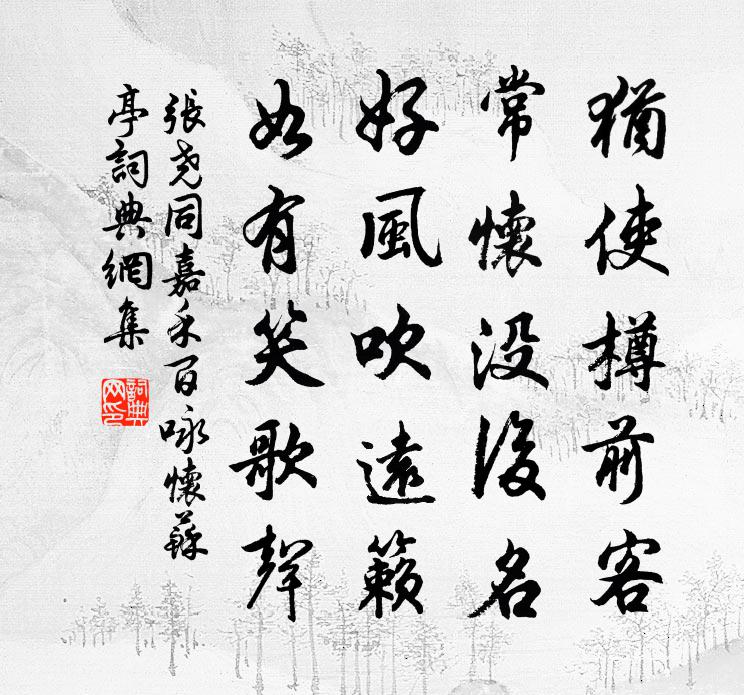 猶使樽前客
常懷没後名
好風吹遠籟
如有笑歌聲
張堯同嘉禾百咏懷蘇
亭詞典網集
詞典
网印